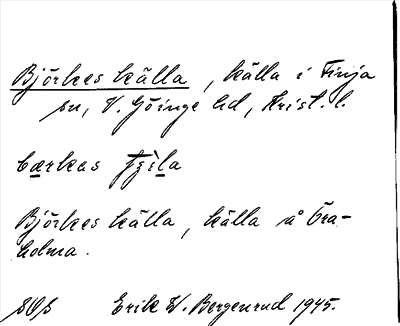 Björkes källa, källa i Finja
sn, V. Göinge hd, Krist. l.
bærkas
Björkes källa, källa å Öra-
holma.
SOS Erik W. Bergenrud 1945.